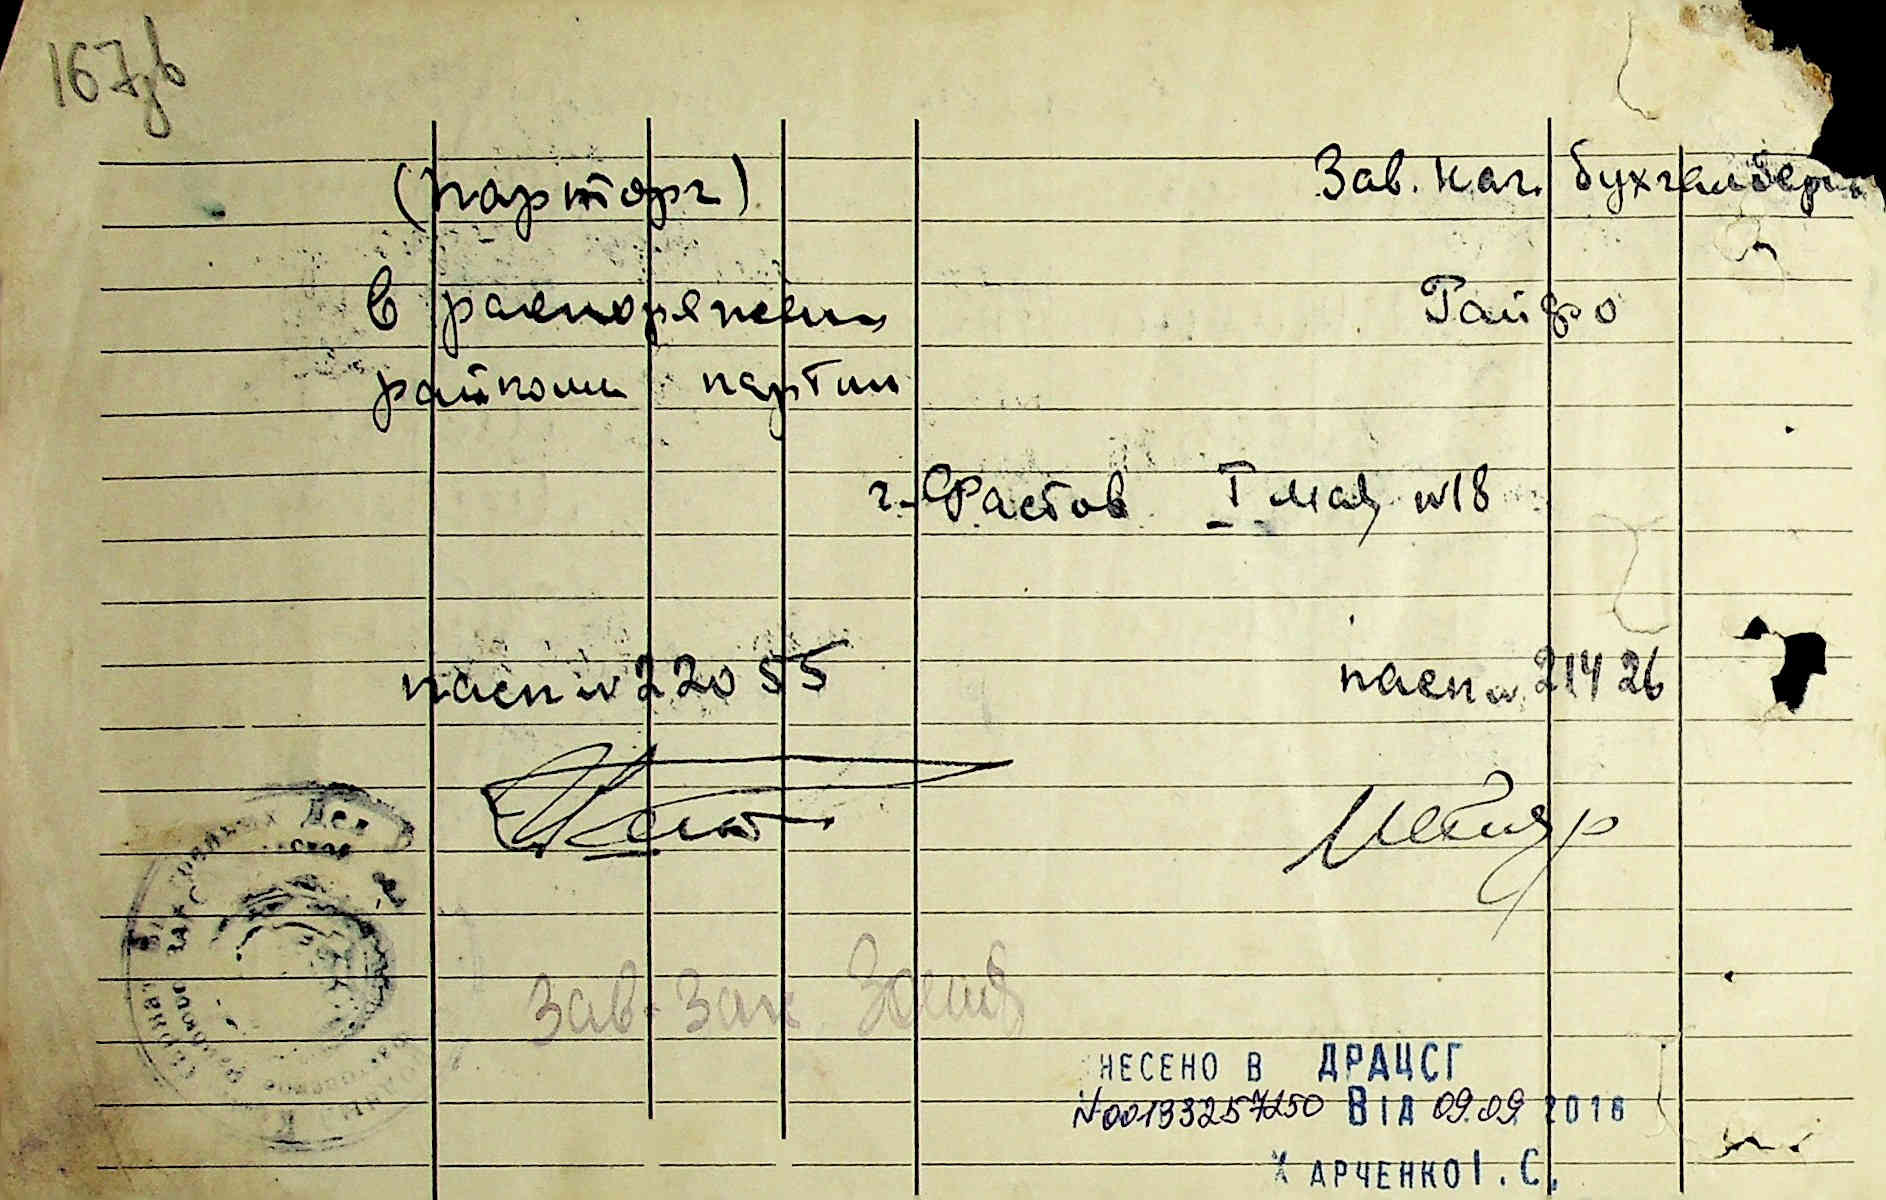 167
(парторг)
Зав. нач. бухгалтери
в распоряжении
Райфо
райкома партии
г. Фастов I мая №18
пасп № 22055
пасп № 21426
Зав. Заг
НЕСЕНО В ДРАЦСГ
№00133257250 ВІД 09.09 2016
ХАРЧЕНКО І. С.